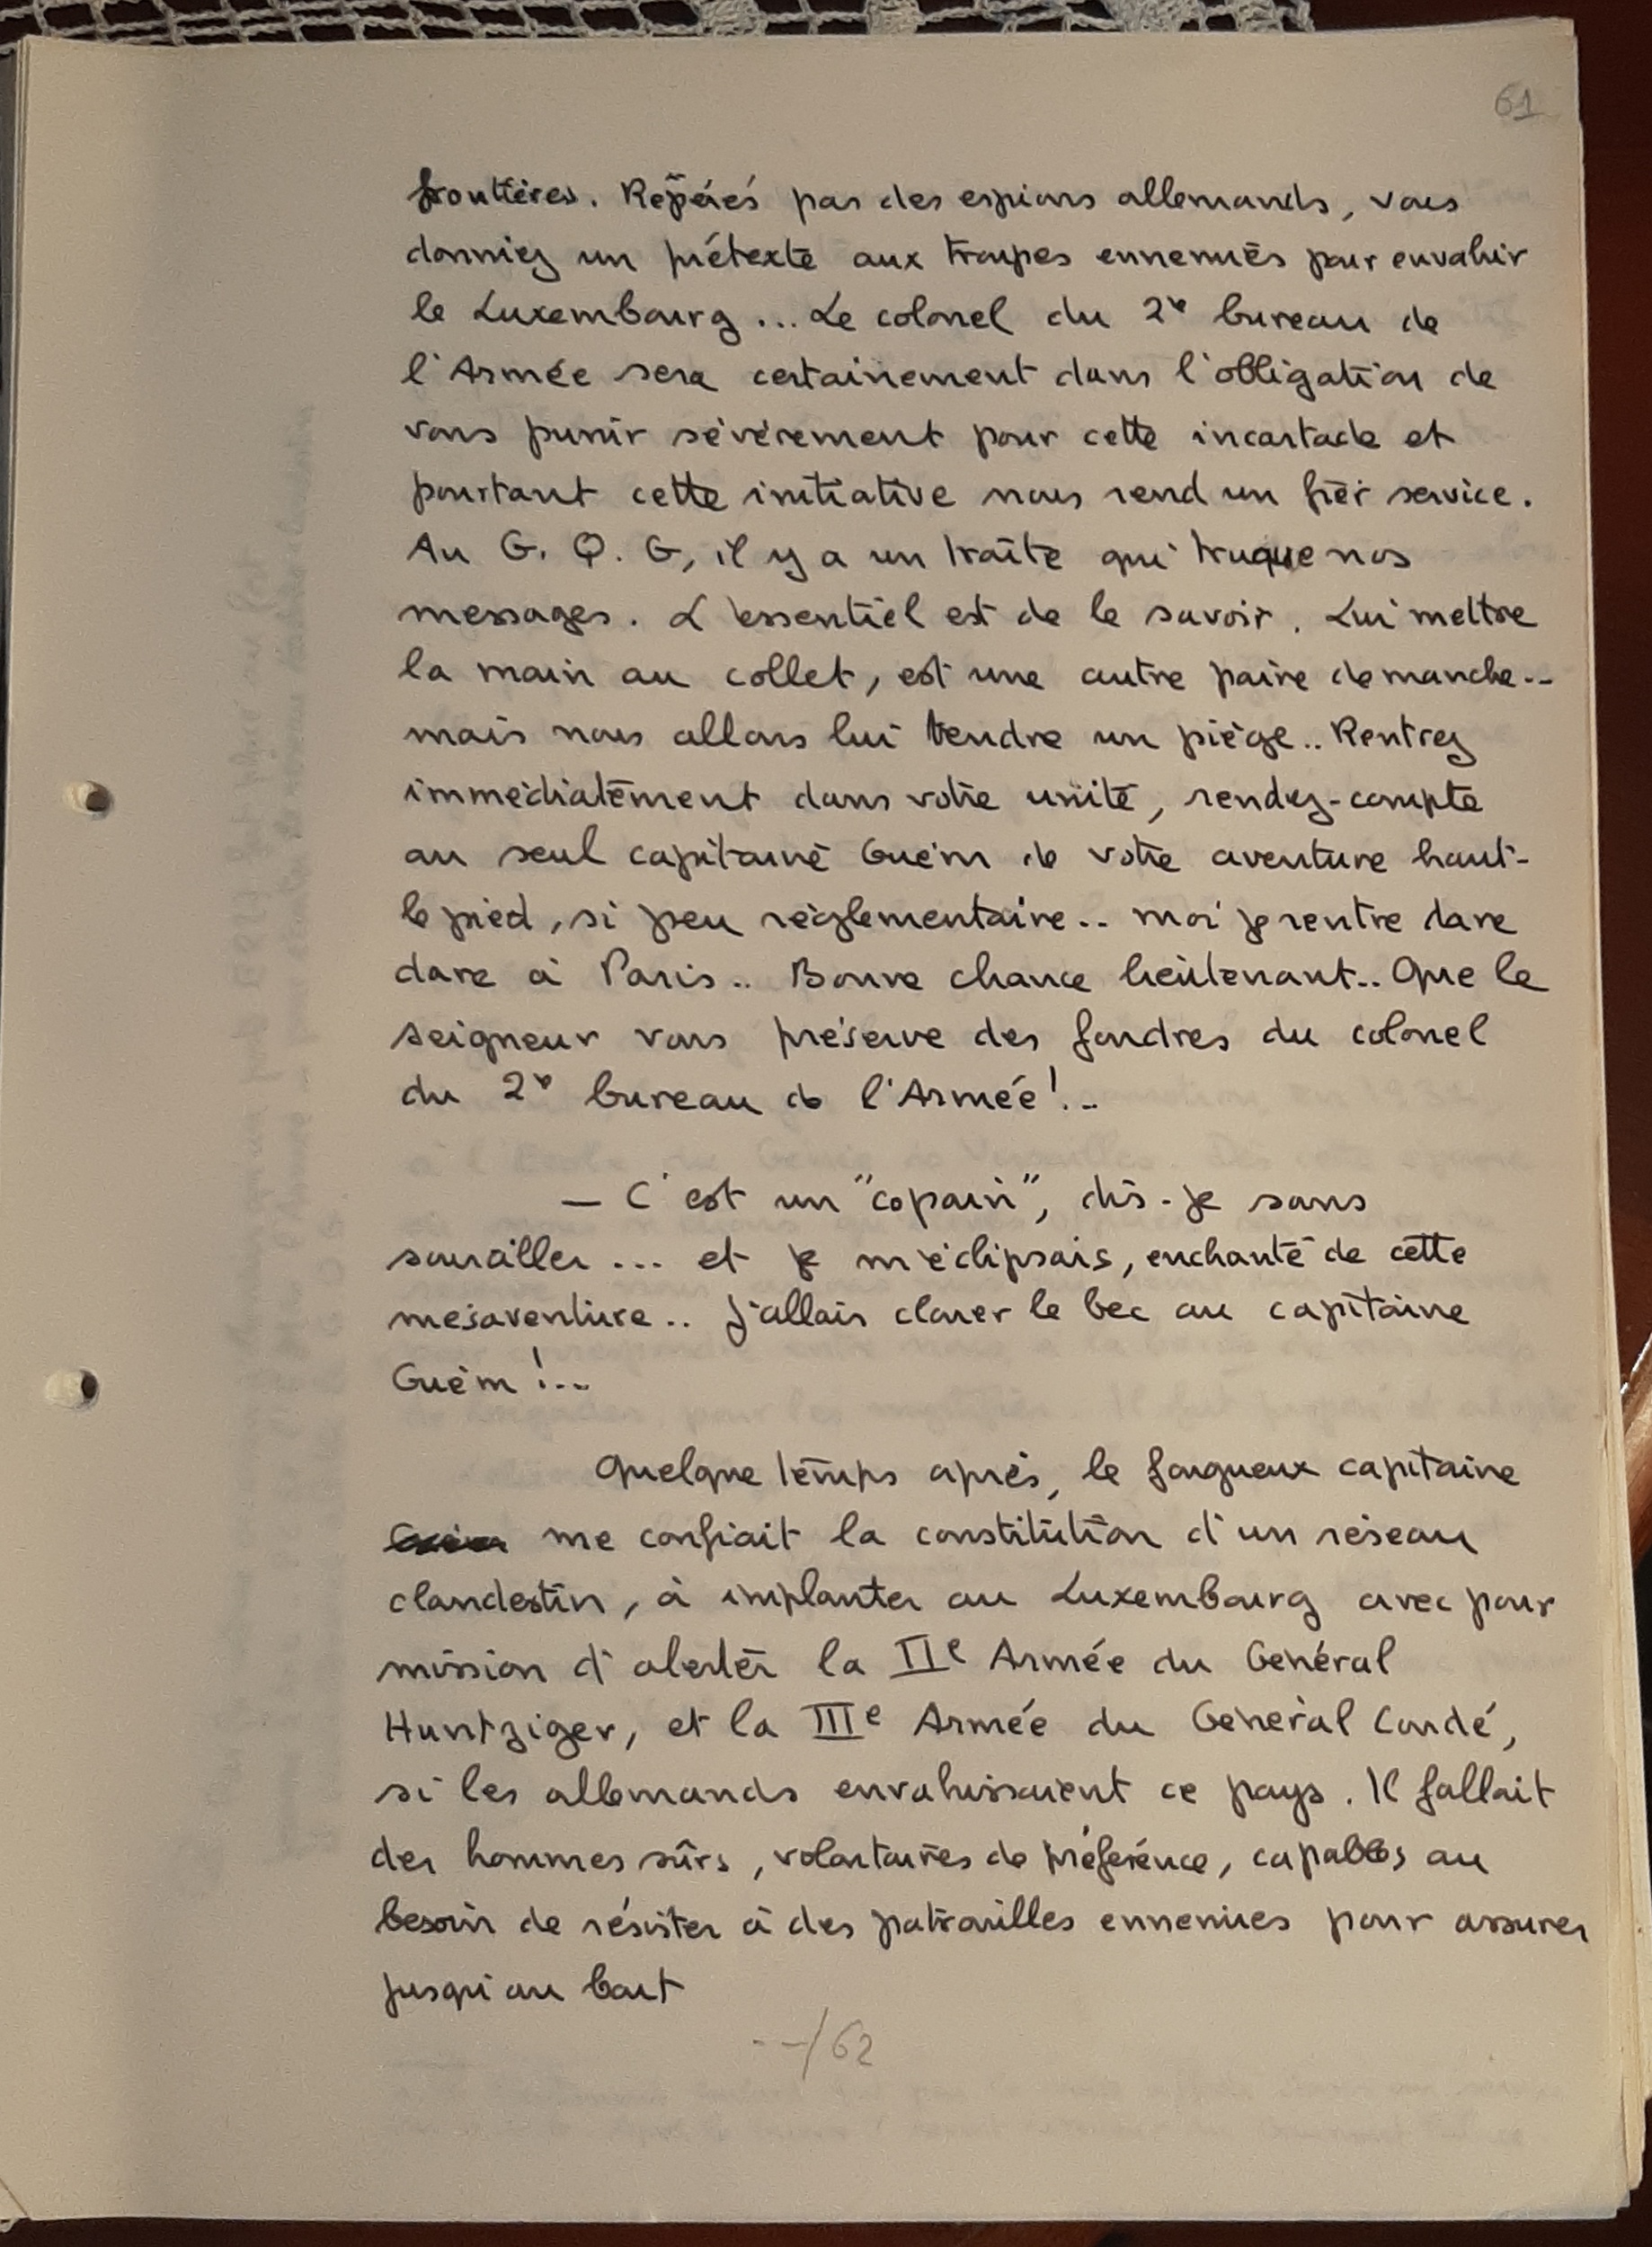 61
frontières. Repérés par des espions allemands, vous
donniez un prétexte aux troupes ennemies pour envahir
le Luxembourg... Le colonel du 2e bureau de
l'Armée sera certainement dans l'obligation de
vous punir sévèrement pour cette incartade et
pourtant cette initiative nous rend un fier service.
Au G. Q. G, il y a un traître qui truque nos
messages. L'essentiel est de le savoir. Lui mettre
la main au collet, est une autre paire de manche..
mais nous allons lui tendre un piège.. Rentrez
immédiatement dans votre unité, rendez-compte
au seul capitaine Guém de votre aventure haut-
le pied, si peu règlementaire.. moi je rentre dare
dare à Paris.. Bonne chance lieutenant.. Que le
seigneur vous préserve des foudres du colonel
du 2e bureau de l'Armée!..
— C'est un "copain", dis-je sans
sourciller... et je m'éclipsais, enchanté de cette
mésaventure.. J'allais clouer le bec au capitaine
Guém!...
Quelque temps après, le fougueux capitaine
me confiait la constitution d'un réseau
clandestin, à implanter au Luxembourg avec pour
mission d'alerter la IIe Armée du Général
Huntziger, et la IIIe Armée du Général Condé,
si les allemands envahissaient ce pays. Il fallait
des hommes sûrs, volontaires de préférence, capables au
besoin de résister à des patrouilles ennemies pour assurer
jusqu'au bout
--/62